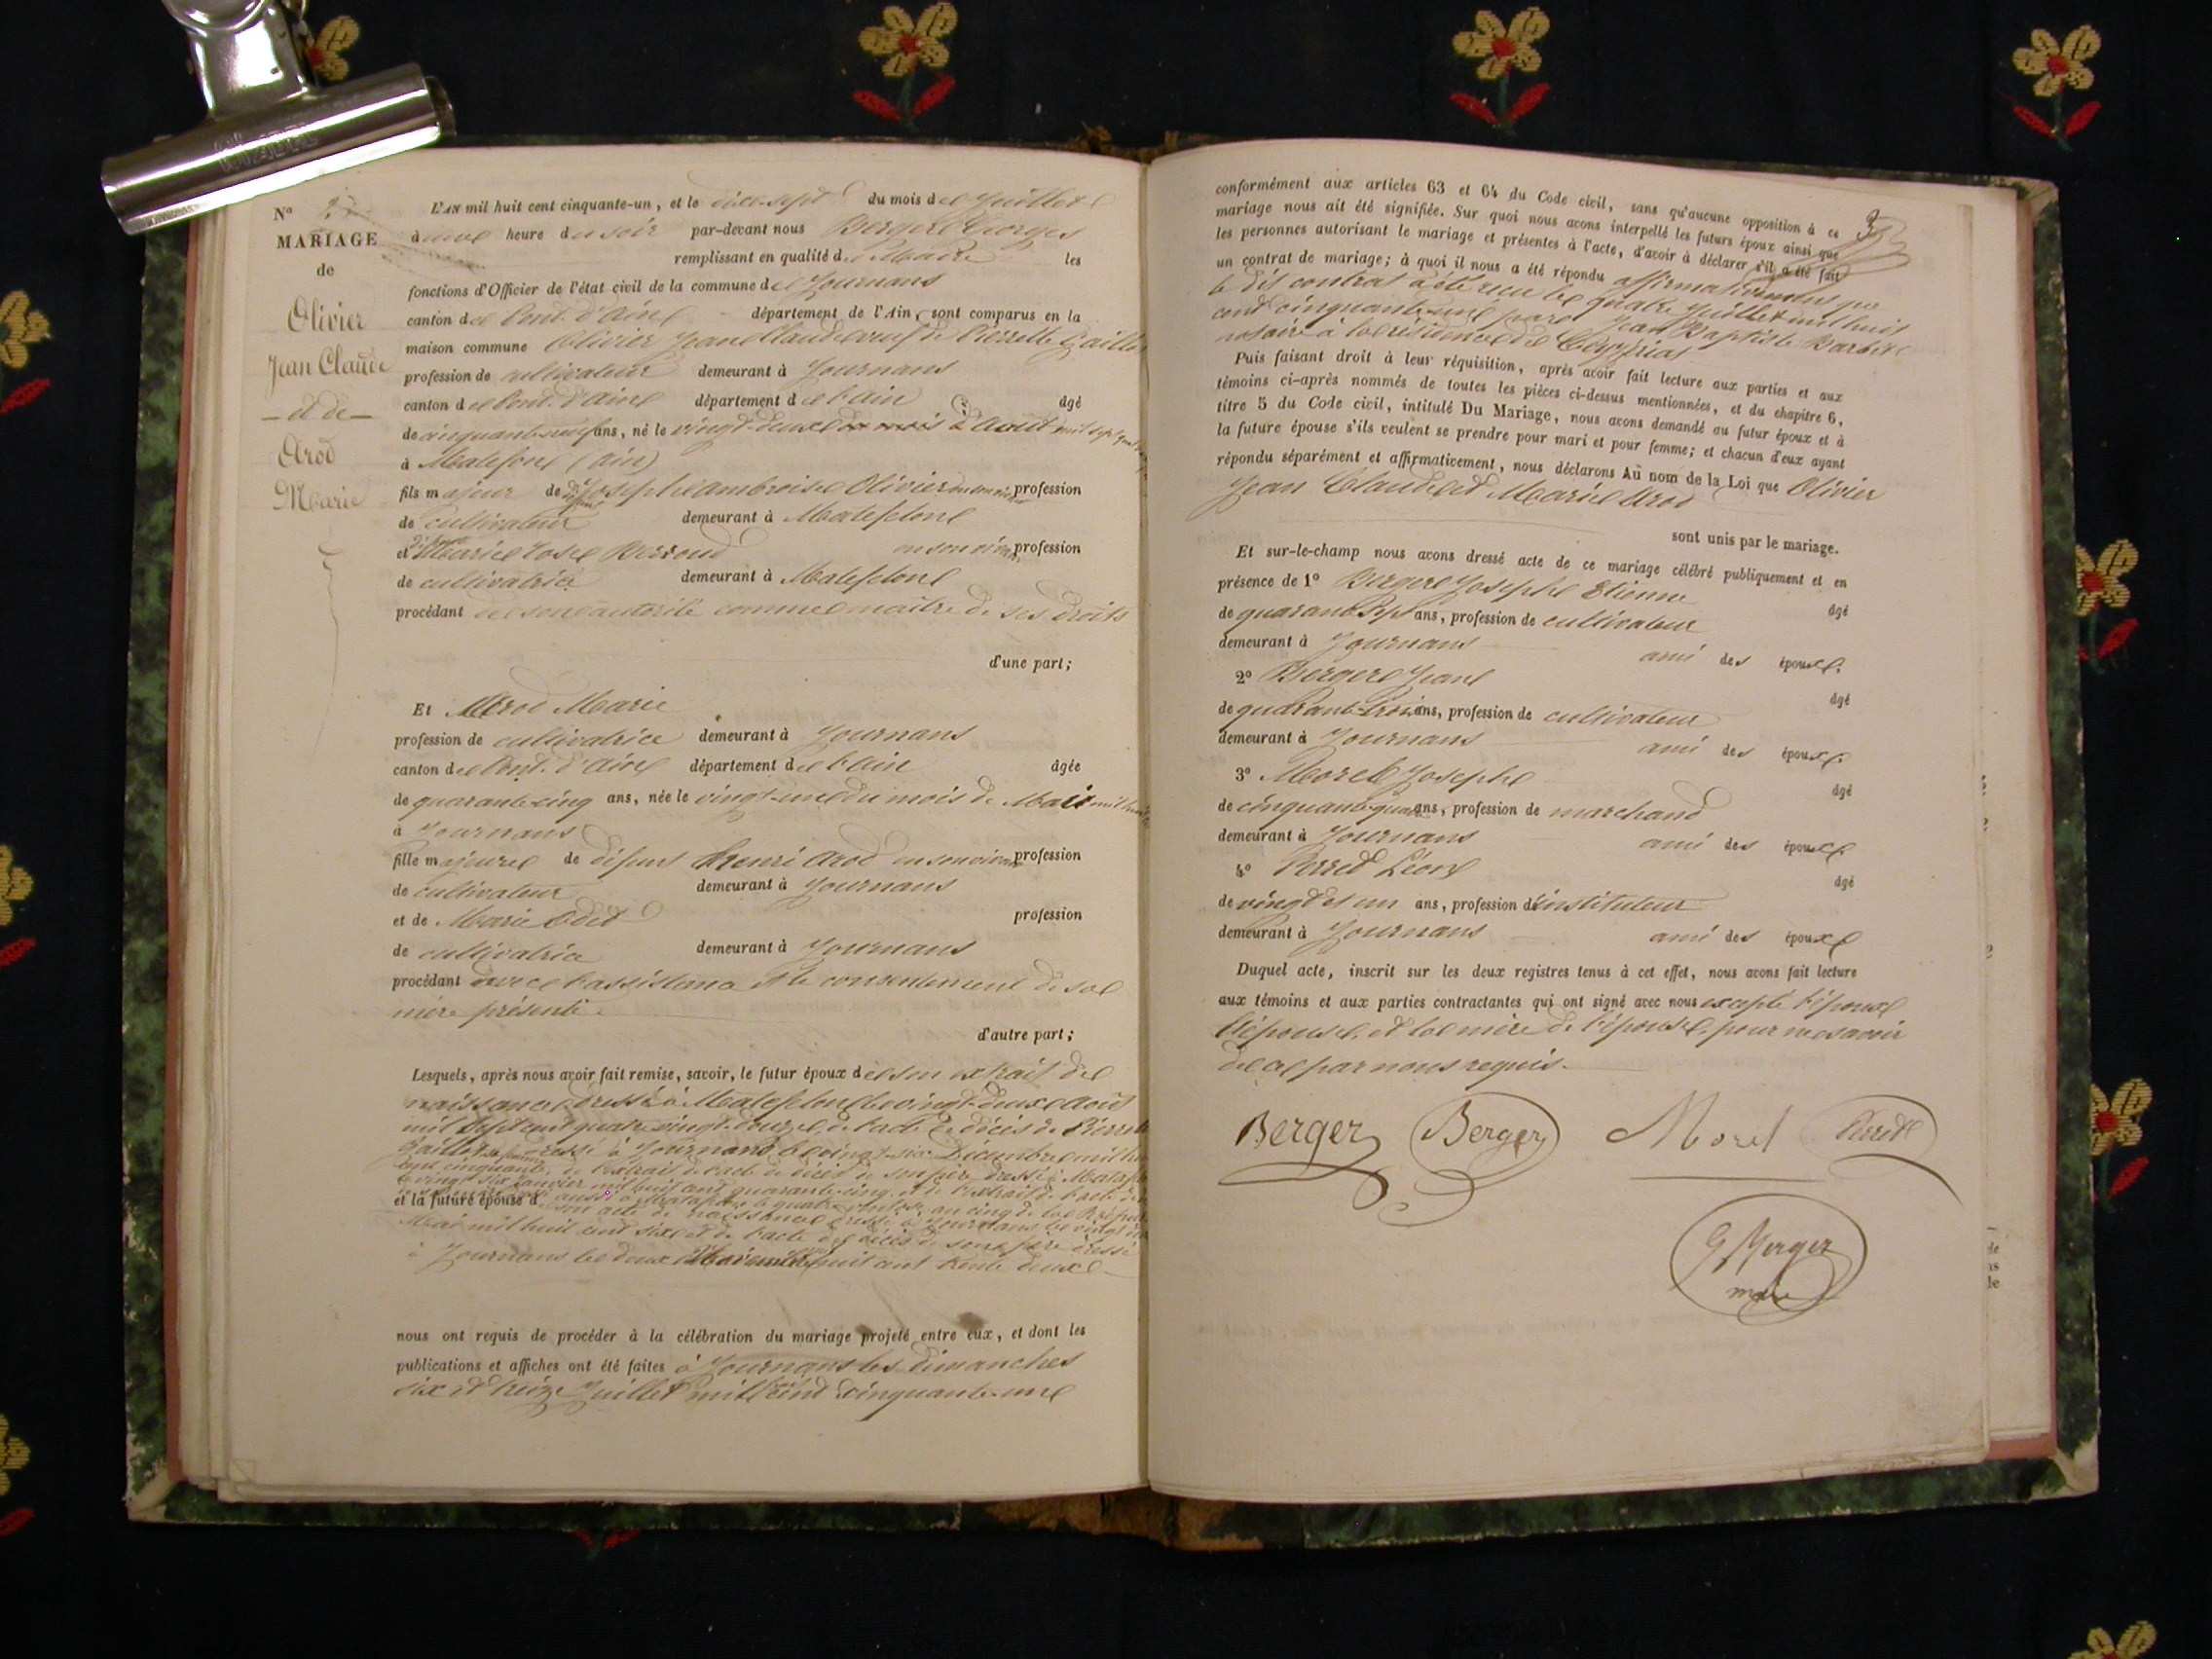 Nº
MARIAGE
de
Olivier
Jean Claude
— et de —
Arod
Marie
L'AN mil huit cent cinquante-un, et le dix-sept du mois de Juillet
à une heure du soir par-devant nous Berger Georges
remplissant en qualité de Maire les
fonctions d'Officier de l'état civil de la commune de Journans
canton de Pont-d'Ain département de l'Ain, sont comparus en la
maison commune Olivier Jean Claude veuf de Pierrette
profession de cultivateur demeurant à Journans
canton de Pont-d'Ain département de l'ain âgé
de cinquante-neuf ans, né le vingt-deux du mois d'aout mil sept
à Matafelon (ain)
fils majeur de défunt Joseph ambroise Olivier en son vivant profession
de cultivateur demeurant à Matafelon
et défunte Marie Rose en son vivant profession
de cultivatrice demeurant à Matafelon
procédant de son autorité comme maître de ses droits
d'une part;
Et Arod Marie
profession de cultivatrice demeurant à Journans
canton de Pont-d'Ain département de l'ain âgée
de quarante-cinq ans, née le vingt-un du mois de Mai mil huit
à Journans
fille majeure de défunt henri Arod en son vivant profession
de cultivateur demeurant à Journans
et de Marie Odet profession
de cultivatrice demeurant à Journans
procédant avec l'assistance et le consentement de sa
mère présente.
d'autre part;
Lesquels, après nous avoir fait remise, savoir, le futur époux de son extrait de
naissance dressé à Matafelon le vingt-deux aout
mil sept cent quatre-vingt-douze, de l'acte de décès de Pierrette
dressé à Journans le vingt-six Décembre mil huit
cent cinquante, de l'extrait de l'acte de décès de son père dressé à
le vingt six janvier mil huit cent quarante-cinq et de l'extrait de l'acte de
et la future épouse de son acte de naissance dressé à Journans le vingt
Mai mil huit cent six et de l'acte de décès de son père dressé
à Journans le deux huit cent trente deux
nous ont requis de procéder à la célébration du mariage projeté entre eux, et dont les
publications et affiches ont été faites à Journans les dimanches
six et treize Juillet mil huit cent cinquante-un
3
conformément aux articles 63 et 64 du Code civil, sans qu'aucune opposition à ce
mariage nous ait été signifiée. Sur quoi nous avons interpellé les futurs époux ainsi que
les personnes autorisant le mariage et présentes à l'acte, d'avoir à déclarer s'il a été fait
un contrat de mariage; à quoi il nous a été répondu affirmativement que
le dit contrat a été reçu le quatre Juillet mil huit
cent cinquante-un par Jean Baptiste
notaire à la résidence de Ceyzériat
Puis faisant droit à leur réquisition, après avoir fait lecture aux parties et aux
témoins ci-après nommés de toutes les pièces ci-dessus mentionnées, et du chapitre 6,
titre 5 du Code civil, intitulé Du Mariage, nous avons demandé au futur époux et à
la future épouse s'ils veulent se prendre pour mari et pour femme; et chacun d'eux ayant
répondu séparément et affirmativement, nous déclarons Au nom de la Loi que Olivier
Jean Claude et Marie Arod
sont unis par le mariage.
Et sur-le-champ nous avons dressé acte de ce mariage célébré publiquement et en
présence de 1º Berger Joseph Etienne âgé
de quarante sept ans, profession de cultivateur
demeurant à Journans ami des époux.
2º Berger Jean âgé
de quarante-trois ans, profession de cultivateur
demeurant à Journans ami des époux.
3º Morel Joseph âgé
de cinquante-quatre ans, profession de marchand
demeurant à Journans ami des époux.
4º Perret Léon âgé
de vingt et un ans, profession d'instituteur
demeurant à Journans ami des époux
Duquel acte, inscrit sur les deux registres tenus à cet effet, nous avons fait lecture
aux témoins et aux parties contractantes qui ont signé avec nous excepté l'époux
l'épouse, et la mère de l'épouse, pour ne savoir
de ce par nous requis.
Berger Berger Morel Perret
G Berger
maire